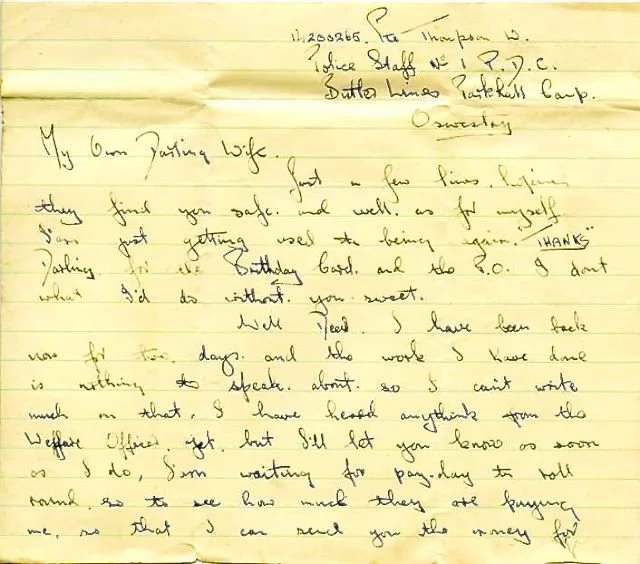 14200265. Pte Thompson W.
Police Staff No 1 P.D.C.
Butler Lines Parkhall Camp.
Oswestry
My Own Darling Wife.
Just a few lines. hoping
they find you safe. and well. as for myself
I'am just getting used to being again. "THANKS"
Darling. for the Birthday Card. and the P.O. I don't
what I'd do without. you sweet.
Well Dear. I have been back
now for two. days. and the work I have done
is nothing to speak. about. so I can't write
much on that. I have heard anythink from the
Welfare Officer. yet. but I'll let you know as soon
as I do, I'am waiting for pay-day to roll
round. so to see how much they are paying
me. so that I can send you the money for